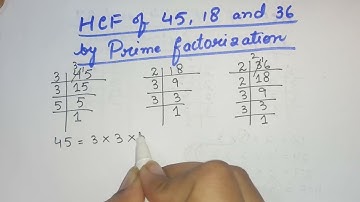 HCF of 45, 18 and 36
by Prime factorization
3 45
3 15
5 5
1
2 18
3 9
3 3
1
2 36
2 18
3 9
3 3
1
45 = 3 × 3 ×